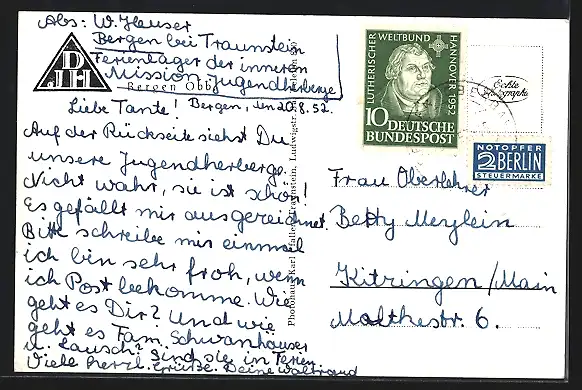 Abs: W. Hauser
Bergen bei Traunstein
Ferienlager der inneren
Mission Jugendherberge
DJH
Bergen Obb.
Bergen, den 20.8.52.
Liebe Tante!
Auf der Rückseite siehst Du
unsere Jugendherberge.
Nicht wahr, sie ist schön!
Es gefällt mir ausgezeichnet.
Bitte schreibe mir einmal
ich bin sehr froh, wenn
ich Post bekomme. Wie
geht es Dir? Und wie
geht es Fam. Schwanhäuser
u. Lausch? Sind sie in Ferien.
Viele herzl. Grüße. Deine Waltraud
Photohaus Karl Pfaller, Traunstein, Ludwigstr.
LUTHERISCHER WELTBUND
HANNOVER 1952
10 DEUTSCHE
BUNDESPOST
Echte
Photographie
NOTOPFER
2 BERLIN
STEUERMARKE
Frau Oberlehrer
Betty Meylein
Kitzingen/Main
Malthestr. 6.